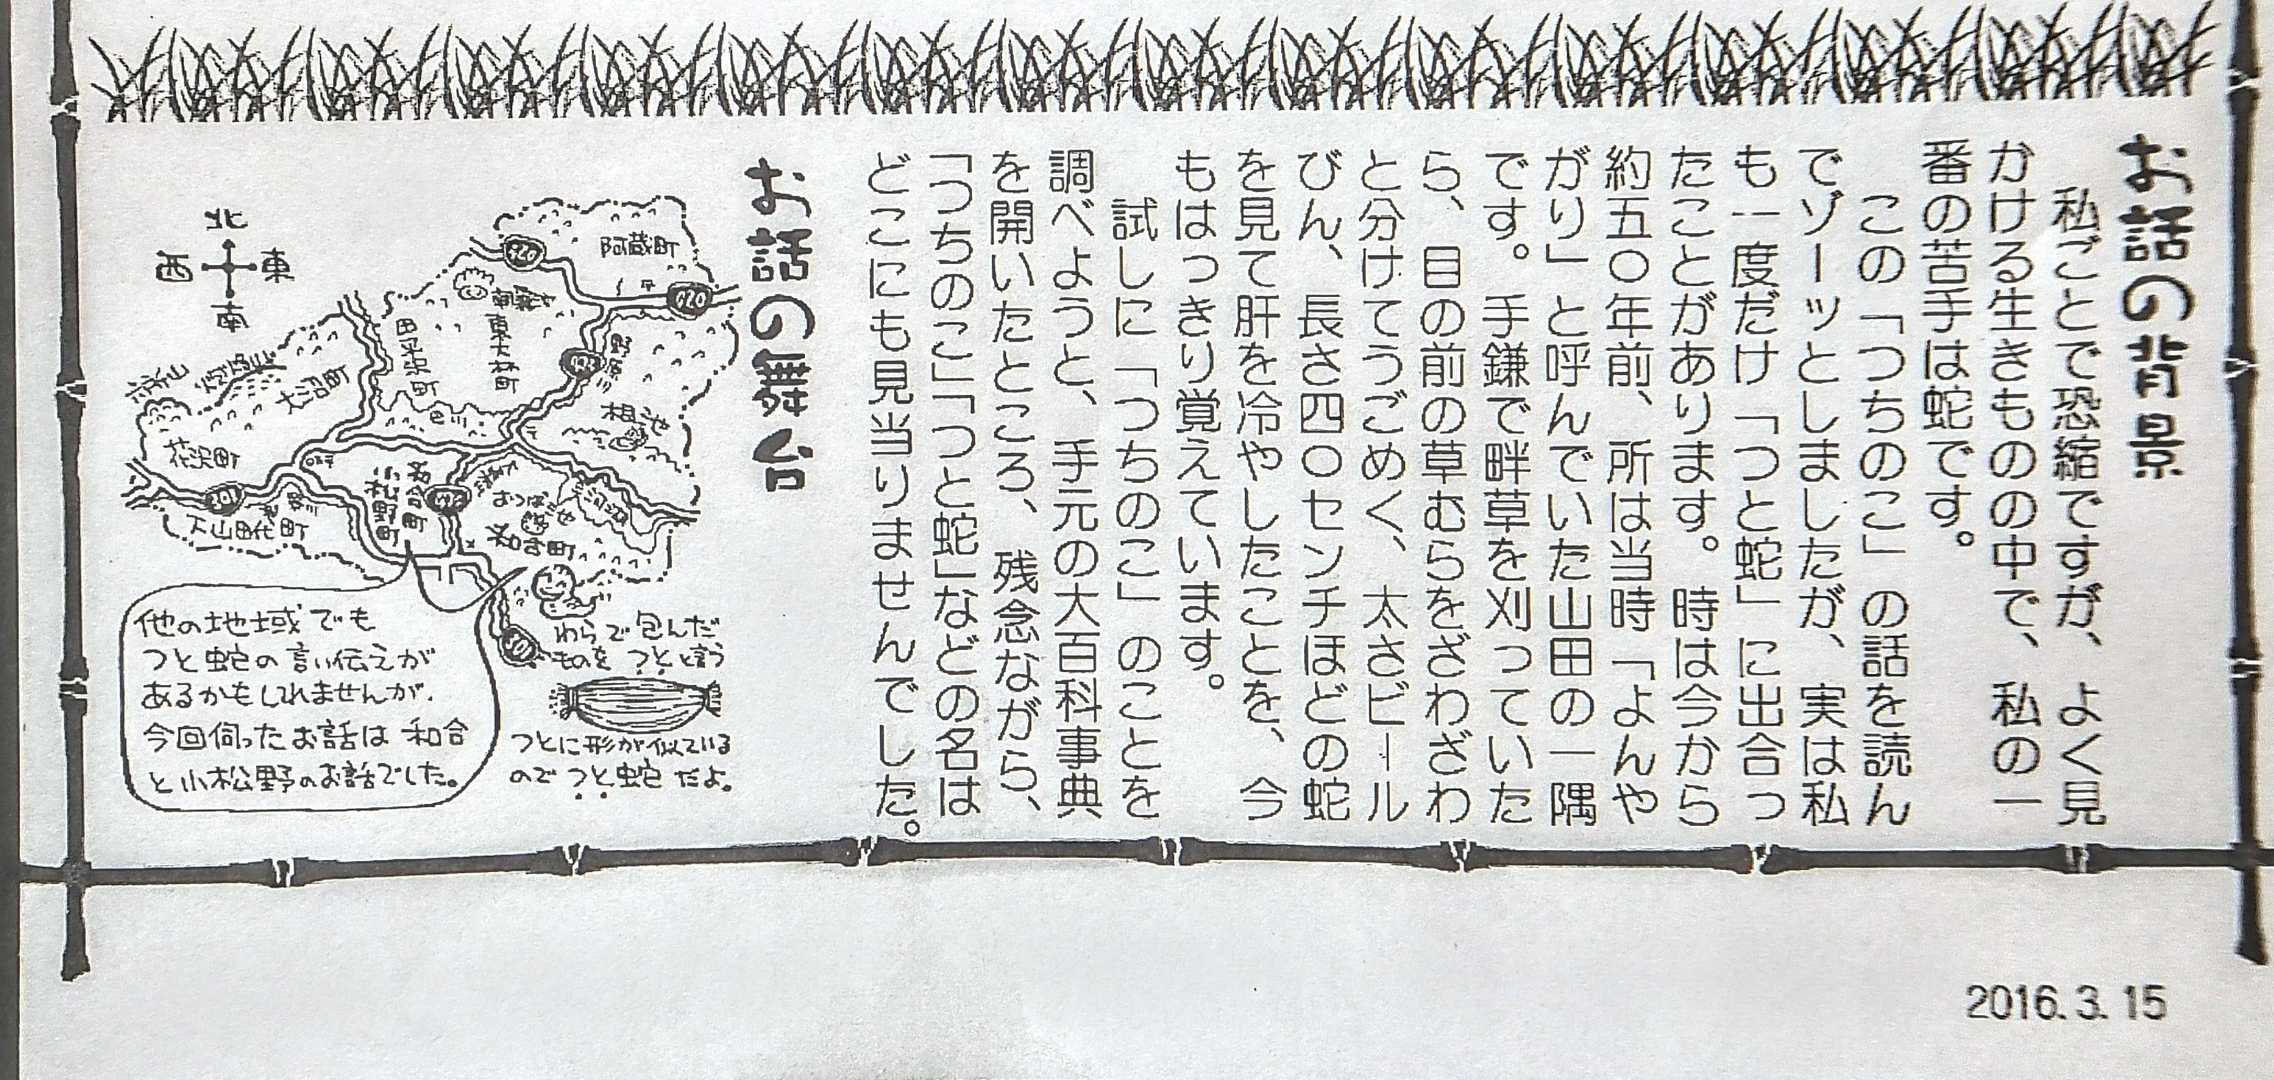 お話の背景
私ごとで恐縮ですが、よく見
かける生きものの中で、私の一
番の苦手は蛇です。
この「つちのこ」の話を読ん
でゾーッとしましたが、実は私
も一度だけ「つと蛇」に出合っ
たことがあります。時は今から
約五〇年前、所は当時「よんや
がり」と呼んでいた山田の一隅
です。手鎌で畔草を刈っていた
ら、目の前の草むらをざわざわ
と分けてうごめく、太さビール
びん、長さ四〇センチほどの蛇
を見て肝を冷やしたことを、今
もはっきり覚えています。
試しに「つちのこ」のことを
調べようと、手元の大百科事典
を開いたところ、残念ながら、
「つちのこ」「つと蛇」などの名は
どこにも見当りませんでした。
お話の舞台
北
西
東
南
阿蔵町
東大林町
田平沢町
大沼町
花沢町
下山田代町
小松野町
和合町
相池
301
わらで包んだ
ものを つと と言う
つとに形が似ている
ので つと蛇 だよ。
他の地域でも
つと蛇の言い伝えが
あるかもしれませんが、
今回伺ったお話は 和合
と小松野のお話でした。
2016.3.15